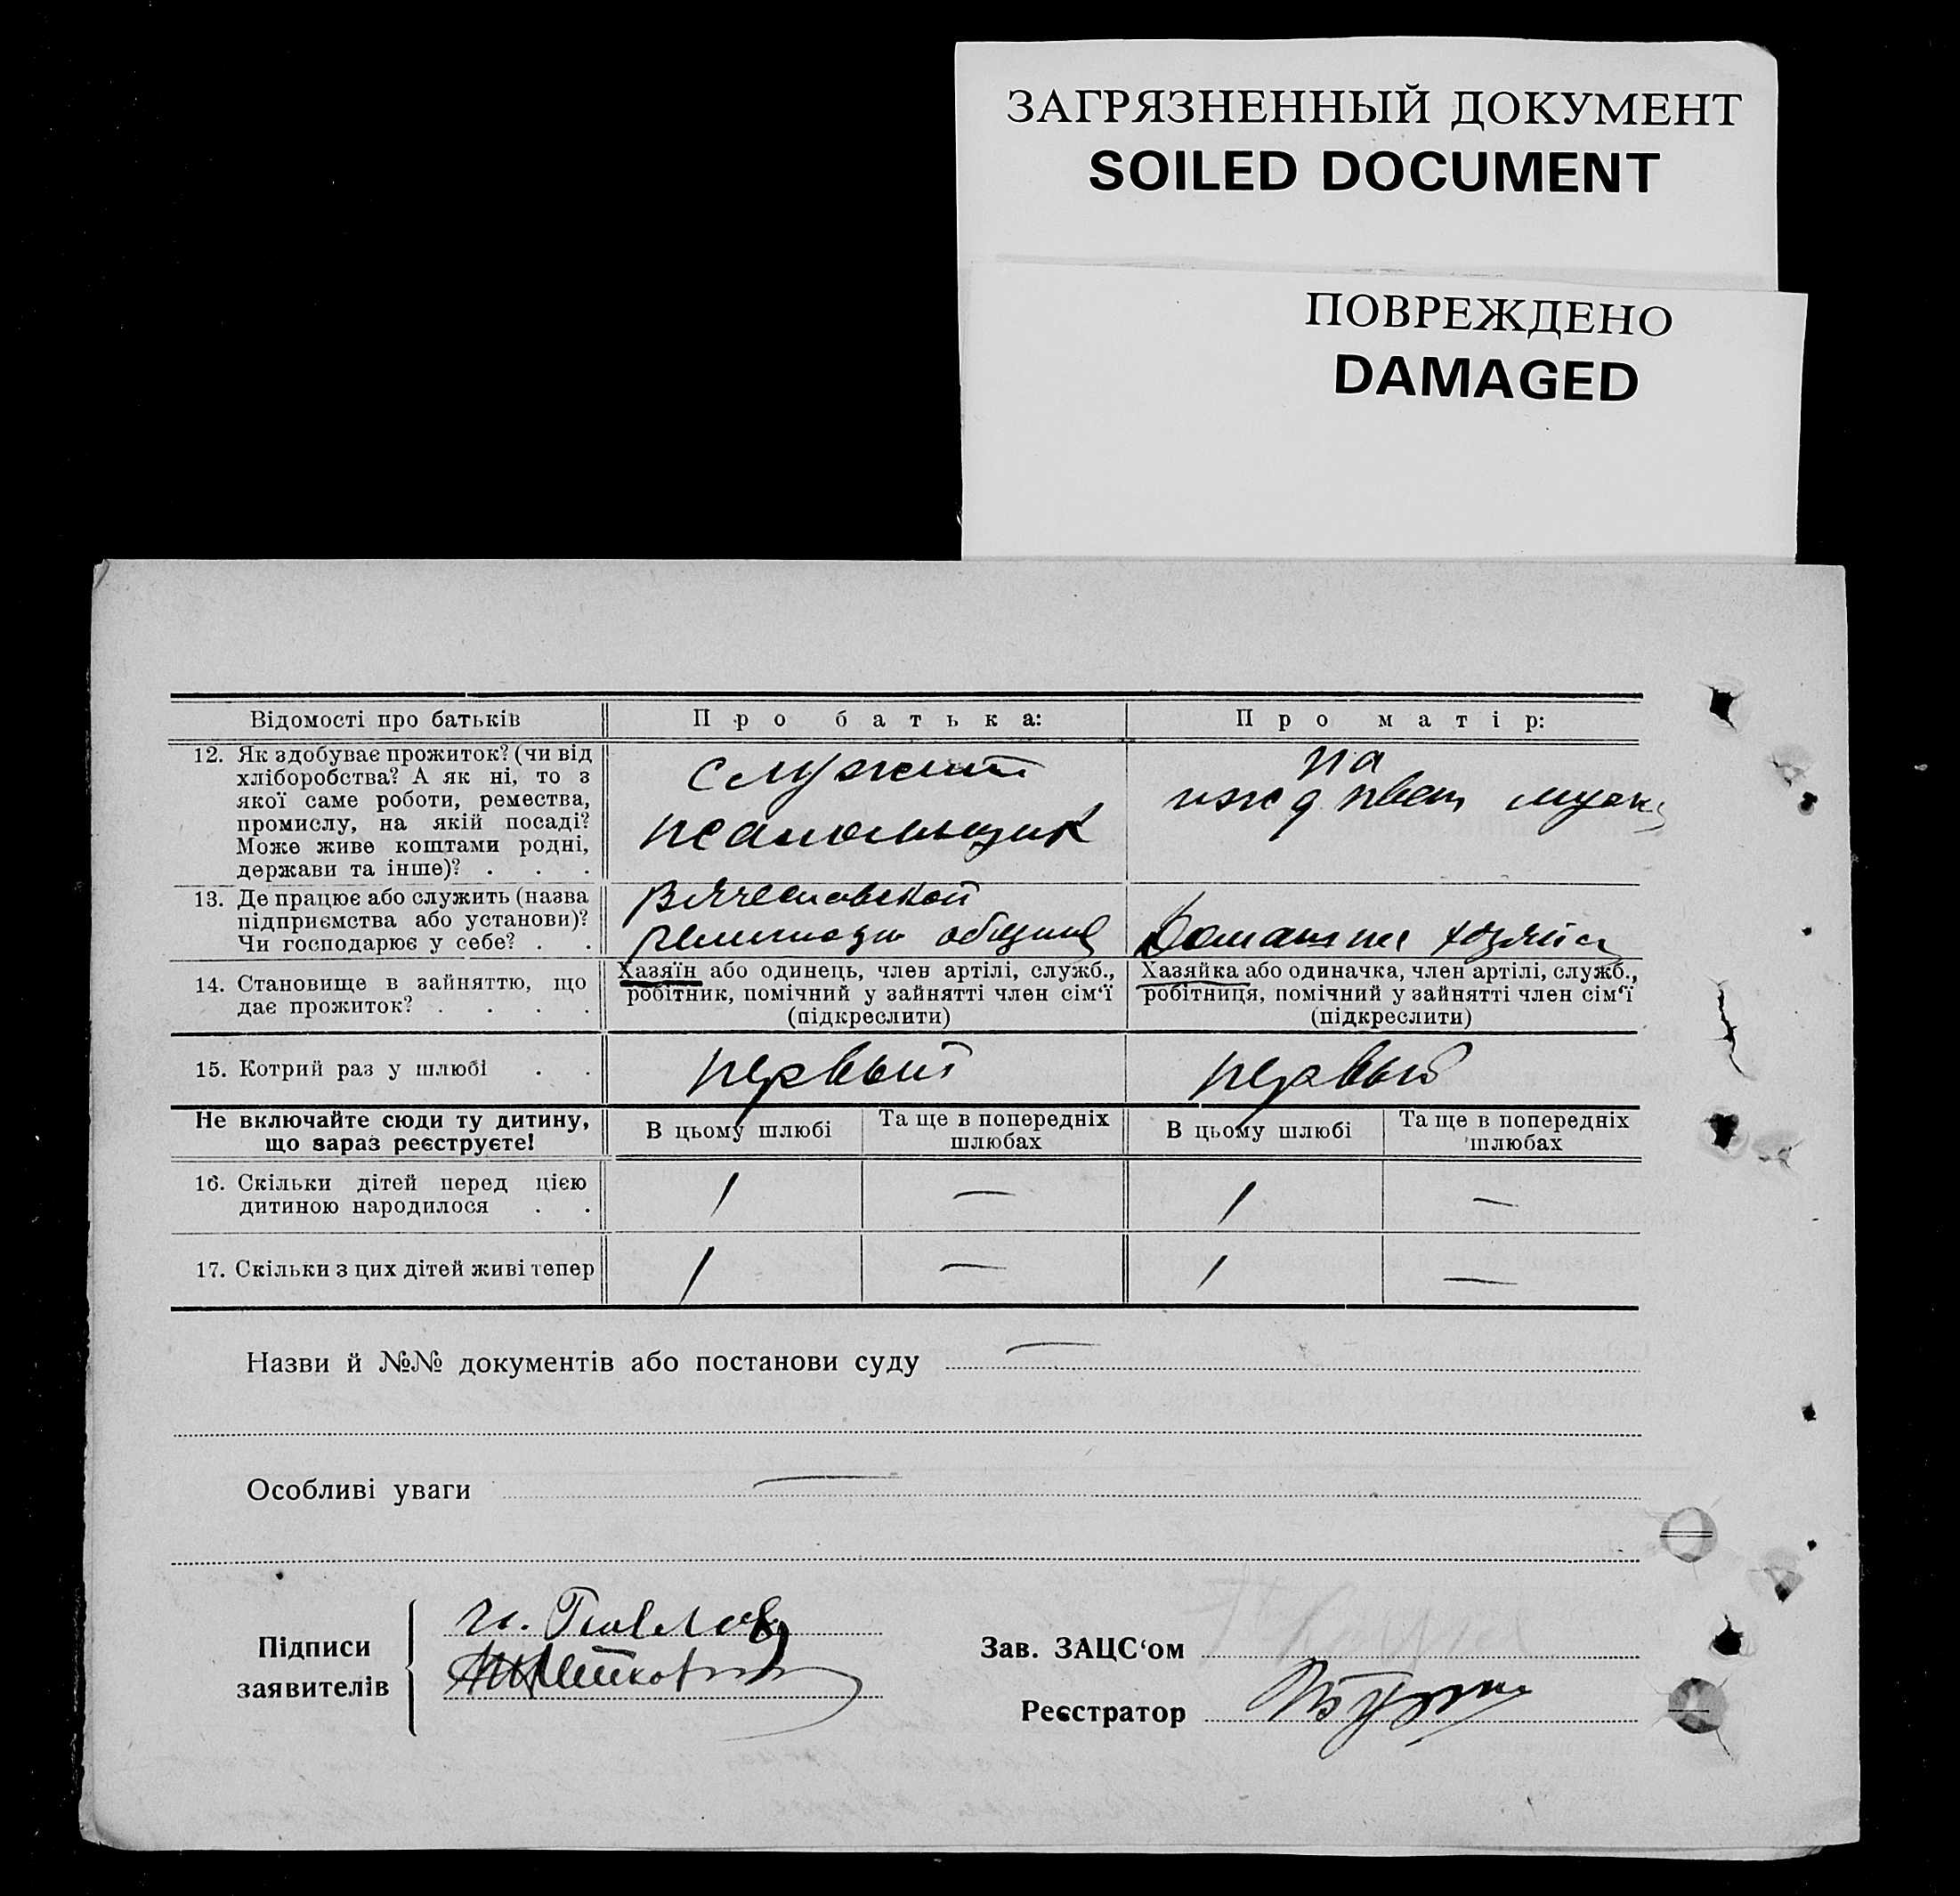 ЗАГРЯЗНЕННЫЙ ДОКУМЕНТ
SOILED DOCUMENT
ПОВРЕЖДЕНО
DAMAGED
Відомості про батьків
Про батька:
Про матір:
12. Як здобуває прожиток? (чи від
хліборобства? А як ні, то з
якої саме роботи, ремества,
промислу, на якій посаді?
Може живе коштами родні,
держави та інше)? . . .
служит
псаломщик
на
иждивен мужа
13. Де працює або служить (назва
підприємства або установи)?
Чи господарює у себе? . .
общине
Домашне хозяйст
14. Становище в зайняттю, що
дає прожиток? . . . .
Хазяїн або одинець, член артілі, служб.,
робітник, помічний у зайнятті член сім‘ї
(підкреслити)
Хазяйка або одиначка, член артілі, служб.,
робітниця, помічний у зайнятті член сім‘ї
(підкреслити)
15. Котрий раз у шлюбі . .
первый
первый
Не включайте сюди ту дитину,
що зараз реєструєте!
В цьому шлюбі
Та ще в попередніх
шлюбах
В цьому шлюбі
Та ще в попередніх
шлюбах
16. Скільки дітей перед цією
дитиною народилося . .
1
—
1
—
17. Скільки з цих дітей живі тепер
1
—
1
—
Назви й №№ документів або постанови суду —
Особливі уваги —
Підписи
заявителів
И. Павлов
Зав. ЗАЦС‘ом
Реєстратор